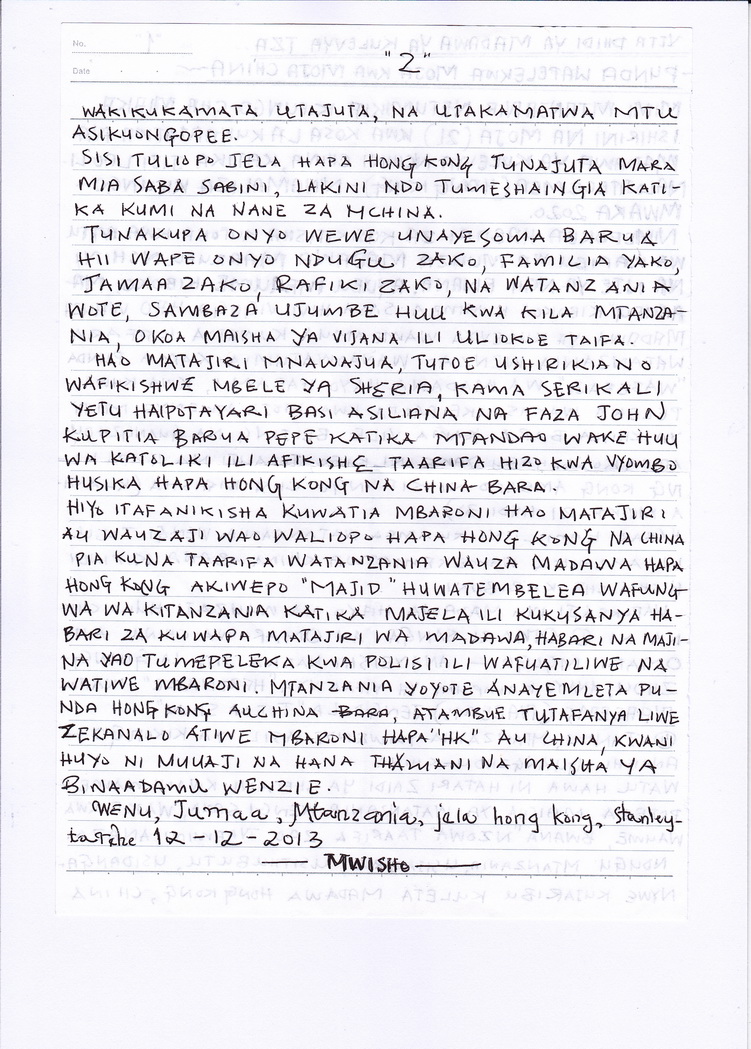 No.
Date
"2"
WAKIKUKAMATA UTAJUTA, NA UTAKAMATWA MTU
ASIKUONGOPEE.
SISI TULIOPO JELA HAPA HONG KONG TUNAJUTA MARA
MIA SABA SABINI, LAKINI NDO TUMESHAINGIA KATI-
KA KUMI NA NANE ZA MCHINA.
TUNAKUPA ONYO WEWE UNAYESOMA BARUA
HII WAPE ONYO NDUGU ZAKO, FAMILIA YAKO,
JAMAA ZAKO, RAFIKI ZAKO, NA WATANZANIA
WOTE, SAMBAZA UJUMBE HUU KWA KILA MTANZA-
NIA, OKOA MAISHA YA VIJANA ILI ULIOKOE TAIFA.
HAO MATAJIRI MNAWAJUA, TUTOE USHIRIKIANO
WAFIKISHWE MBELE YA SHERIA, KAMA SERIKALI
YETU HAIPOTAYARI BASI ASILIANA NA FAZA JOHN
KUPITIA BARUA PEPE KATIKA MTANDAO WAKE HUU
WA KATOLIKI ILI AFIKISHE TAARIFA HIZO KWA VYOMBO
HUSIKA HAPA HONG KONG NA CHINA BARA.
HIYO ITAFANIKISHA KUWATIA MBARONI HAO MATAJIRI
AU WAUZAJI WAO WALIOPO HAPA HONG KONG NA CHINA
PIA KUNA TAARIFA WATANZANIA WAUZA MADAWA HAPA
HONG KONG AKIWEPO "MAJID" HUWATEMBELEA WAFUNG
WA WA KITANZANIA KATIKA MAJELA ILI KUKUSANYA HA-
BARI ZA KUWAPA MATAJIRI WA MADAWA, HABARI NA MAJI-
NA YAO TUMEPELEKA KWA POLISI ILI WAFUATILIWE NA
WATIWE MBARONI. MTANZANIA YOYOTE ANAYEMLETA PU-
NDA HONG KONG AU CHINA BARA, ATAMBUE TUTAFANYA LIWE
ZEKANALO ATIWE MBARONI HAPA "HK" AU CHINA, KWANI
HUYO NI MUUAJI NA HANA THAMANI NA MAISHA YA
BINAADAMU WENZIE.
WENU, Jumaa, Mtanzania, jela hong kong, Stanley-
tarehe 12-12-2013
MWISHO